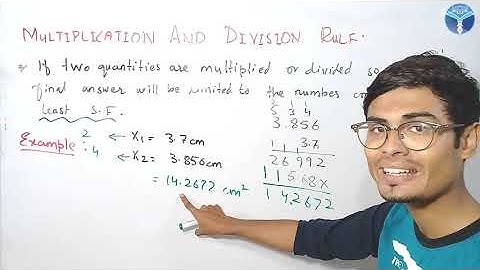 MULTIPLICATION AND DIVISION RULE.
* If two quantities are multiplied or divided so
final answer will be limited to the number
Least S.F.
Example
2 ← X1 = 3.7cm
4 ← X2 = 3.856cm
= 14.2672 cm²
5 3 4
3.856
3.7
26992
11568X
14.2672